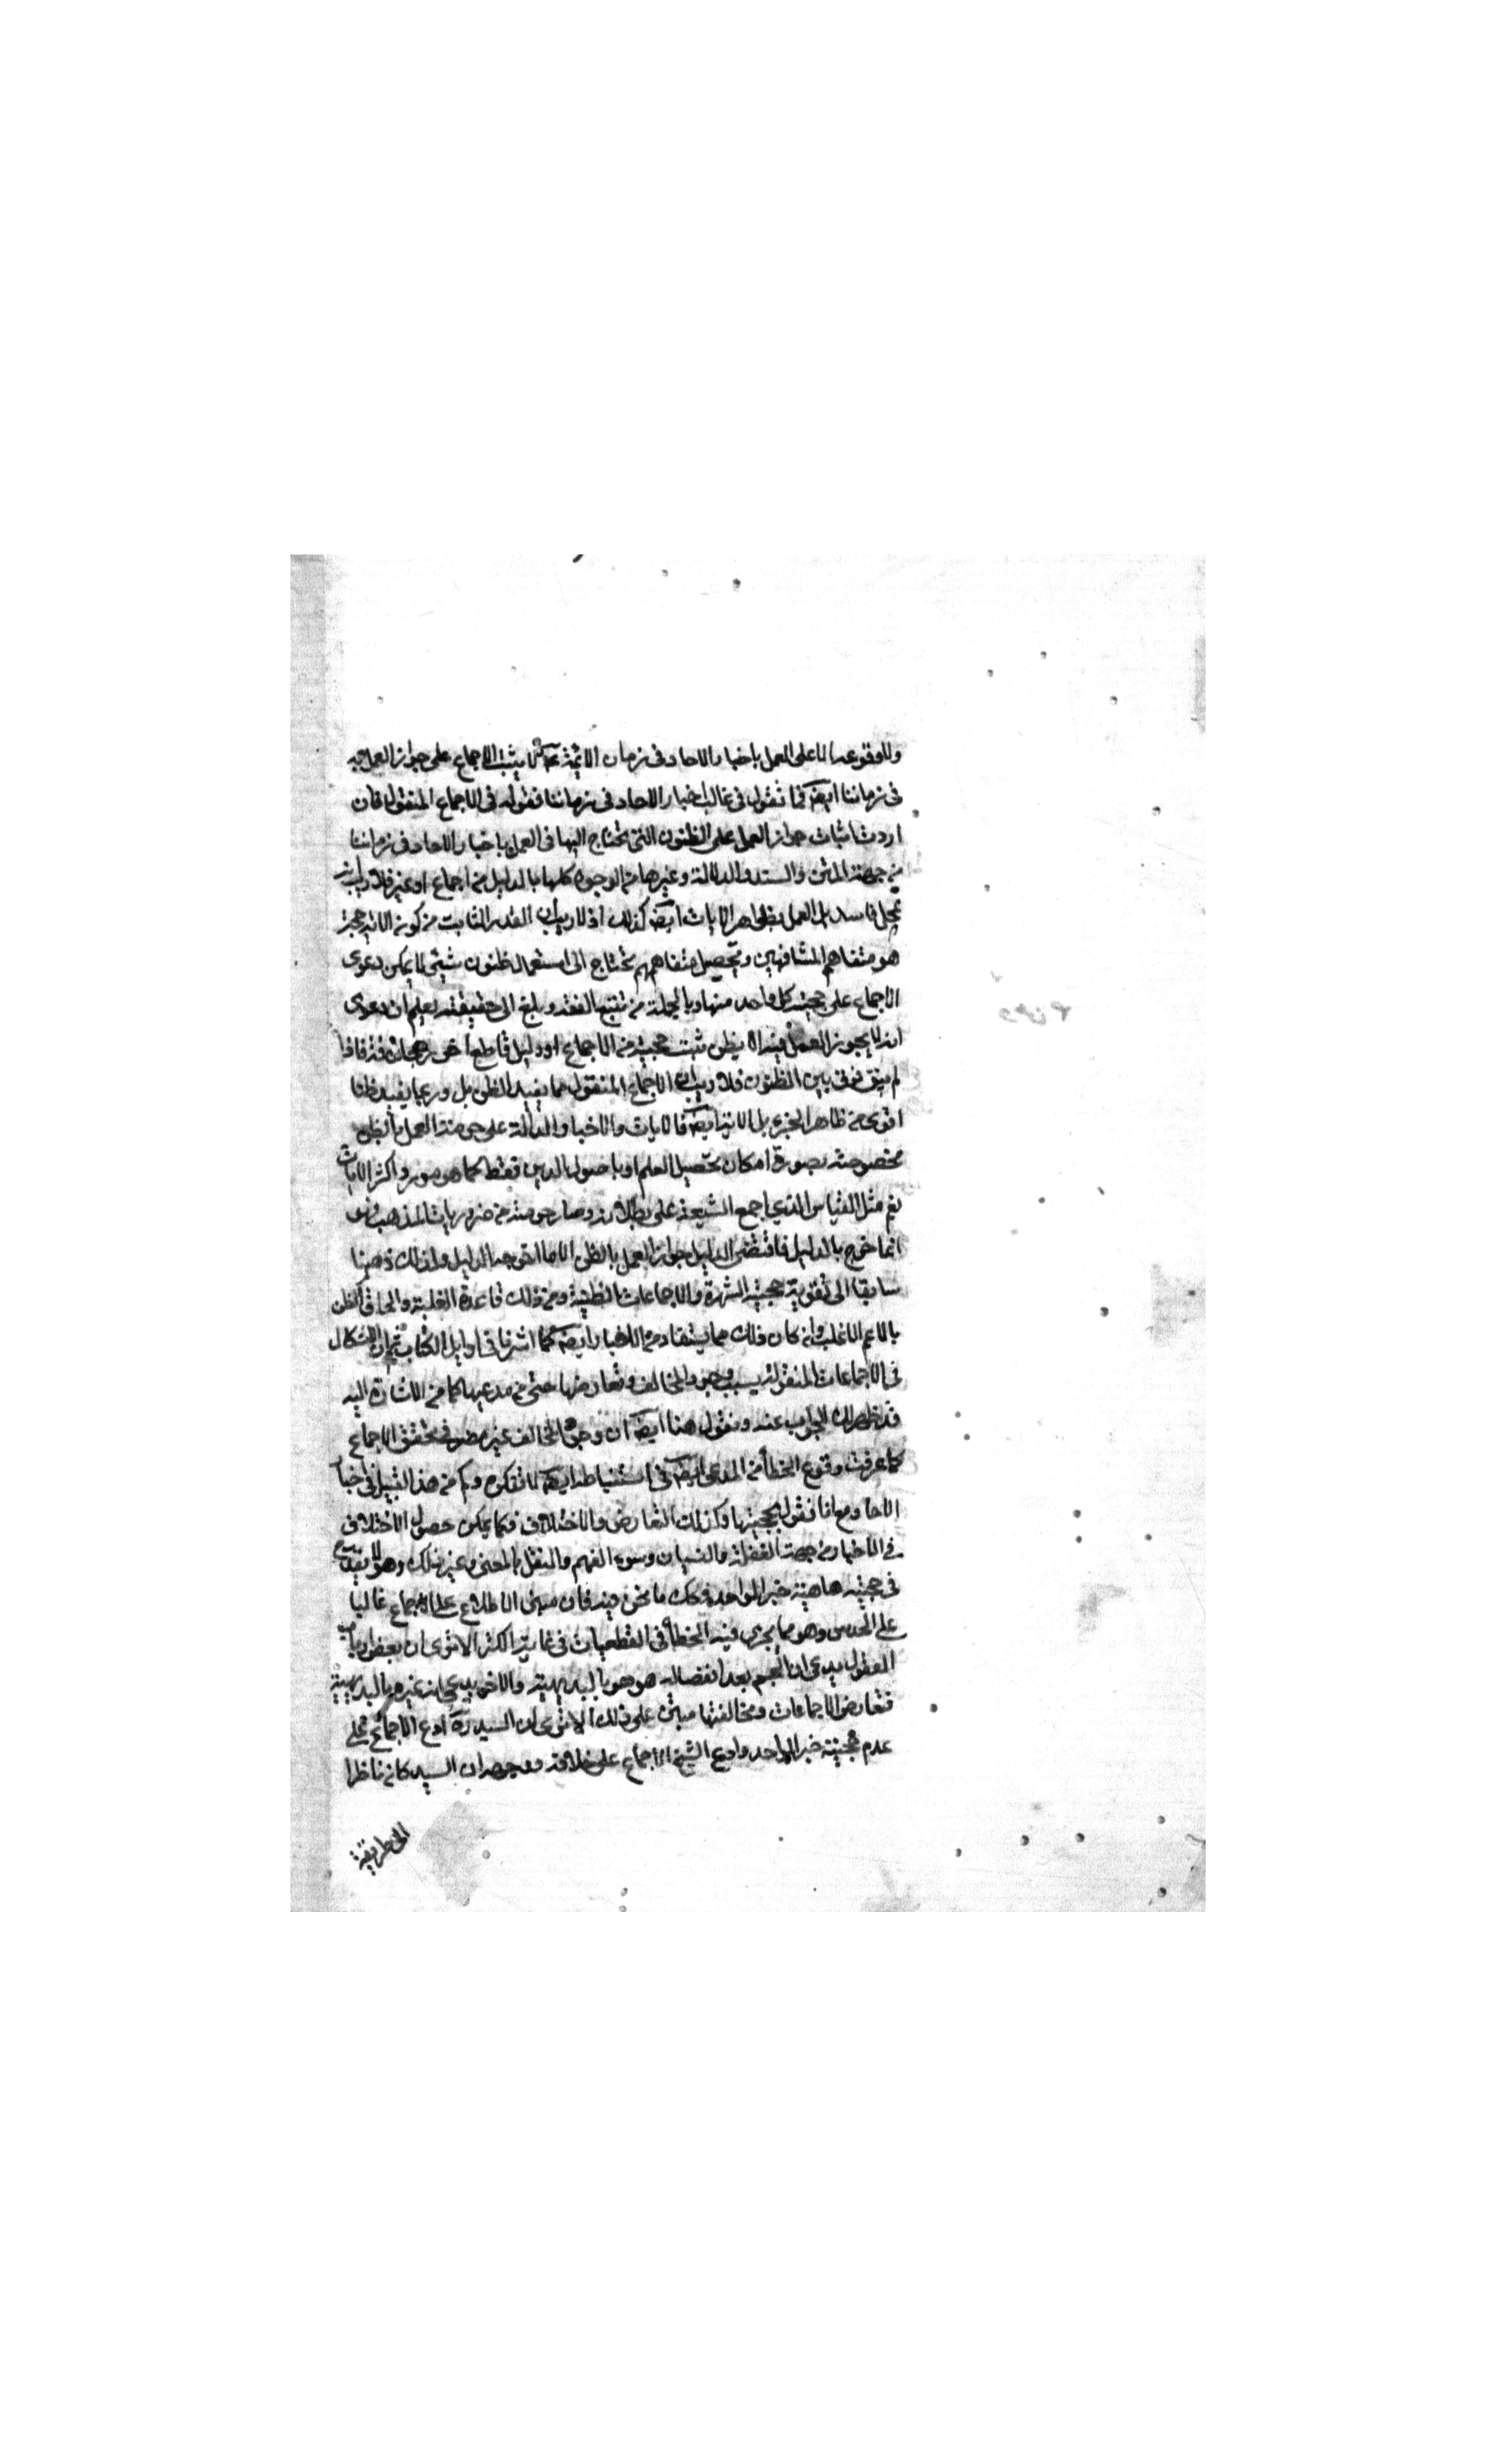 ولا وقوعه الا على العمل باخبار الآحاد في زمان الائمة عم كما يثبت الاجماع على جواز العمل به
في زماننا ايضه فما تقول في غالب اخبار الآحاد في زماننا نقوله في الاجماع المنقول فان
اردت اثبات جواز العمل على الظنون التي تحتاج اليها في العمل باخبار الآحاد في زماننا
من جهة المتن والسند والدلالة وغيرها من الوجوه كلها بالدليل من اجماع او غيره فلا ريب انه
العمل بظواهر الآيات ايضه كذلك اذ لا ريب ان القدر الثابت من كون الآية حجة
هو متفاهم المشافهين وتحصيل متفاهمهم يحتاج الى استعمال ظنون شتى لا يمكن دعوى
الاجماع على حجية كل واحد منها وبالجملة من تتبع الفقه وبلغ الى حقيقته يعلم ان دعوى
انه لا يجوز العمل فيه الا بظن ثبت حجيته من الاجماع او دليل قاطع اخر فاذا
لم يبق فرق بين الظنون فلا ريب ان الاجماع المنقول مما يفيد الظن بل وربما يفيد ظنا
اقوى من ظاهر الخبر بل الآية ايضه فالآيات والاخبار الدالة على حرمة العمل بالظن
مخصوصة بصورة امكان تحصيل العلم او باصول الدين فقط كما هو مورد اكثر الآيات
نعم مثل القياس الذي اجمع الشيعة على بطلانه وصار حرمته من ضروريات المذهب
انما خرج بالدليل فاقتضى الدليل جواز العمل بالظن الا ما اخرجه الدليل ولذلك ذهبنا
سابقا الى تقوية حجية الشهرة والاجماعات الظنية ومن ذلك قاعدة الغلبة والحاق الظن
بالاعم الاغلب وان كان ذلك مما يستفاد من الاخبار ايضه كما اشرنا في اوايل الكتاب ثم ان الاشكال
في الاجماعات المنقولة بسبب وجود المخالف وتعارضها حتى من مدعيها كما مر الاشارة اليه
قد ظهر لك الجواب عنه ونقول هنا ايضه ان وجود المخالف غير مضر في تحقق الاجماع
كما عرفت وقوع الخطأ من المدعي ايضه في استنباطه ايضه لا تنكره وكم من هذا القبيل في اخبار
الآحاد مع انا نقول بحجيتها وكذلك التعارض والاختلاف فكما يمكن حصول الاختلاف
في الاخبار من جهة الغفلة والنسيان وسوء الفهم والنقل بالمعنى وغير ذلك وهو لا يقدح
في حجية ماهية خبر الواحد فكك ما نحن فيه فان مبنى الاطلاع على الاجماع غالبا
على الحدس وهو مما يجري فيه الخطأ في القطعيات في غاية الكثرة الا ترى ان بعض ارباب
العقول يدعي ان الجسم بعد انفصاله هو هو بالبديهية والاخر يدعي انه غيره بالبديهية
فتعارض الاجماعات ومخالفتها مبتن على ذلك الا ترى ان السيد ره ادعى الاجماع على
عدم حجية خبر الواحد وادعى الشيخ الاجماع على خلافه ووجهه ان السيد كان ناظرا
الى طريقة